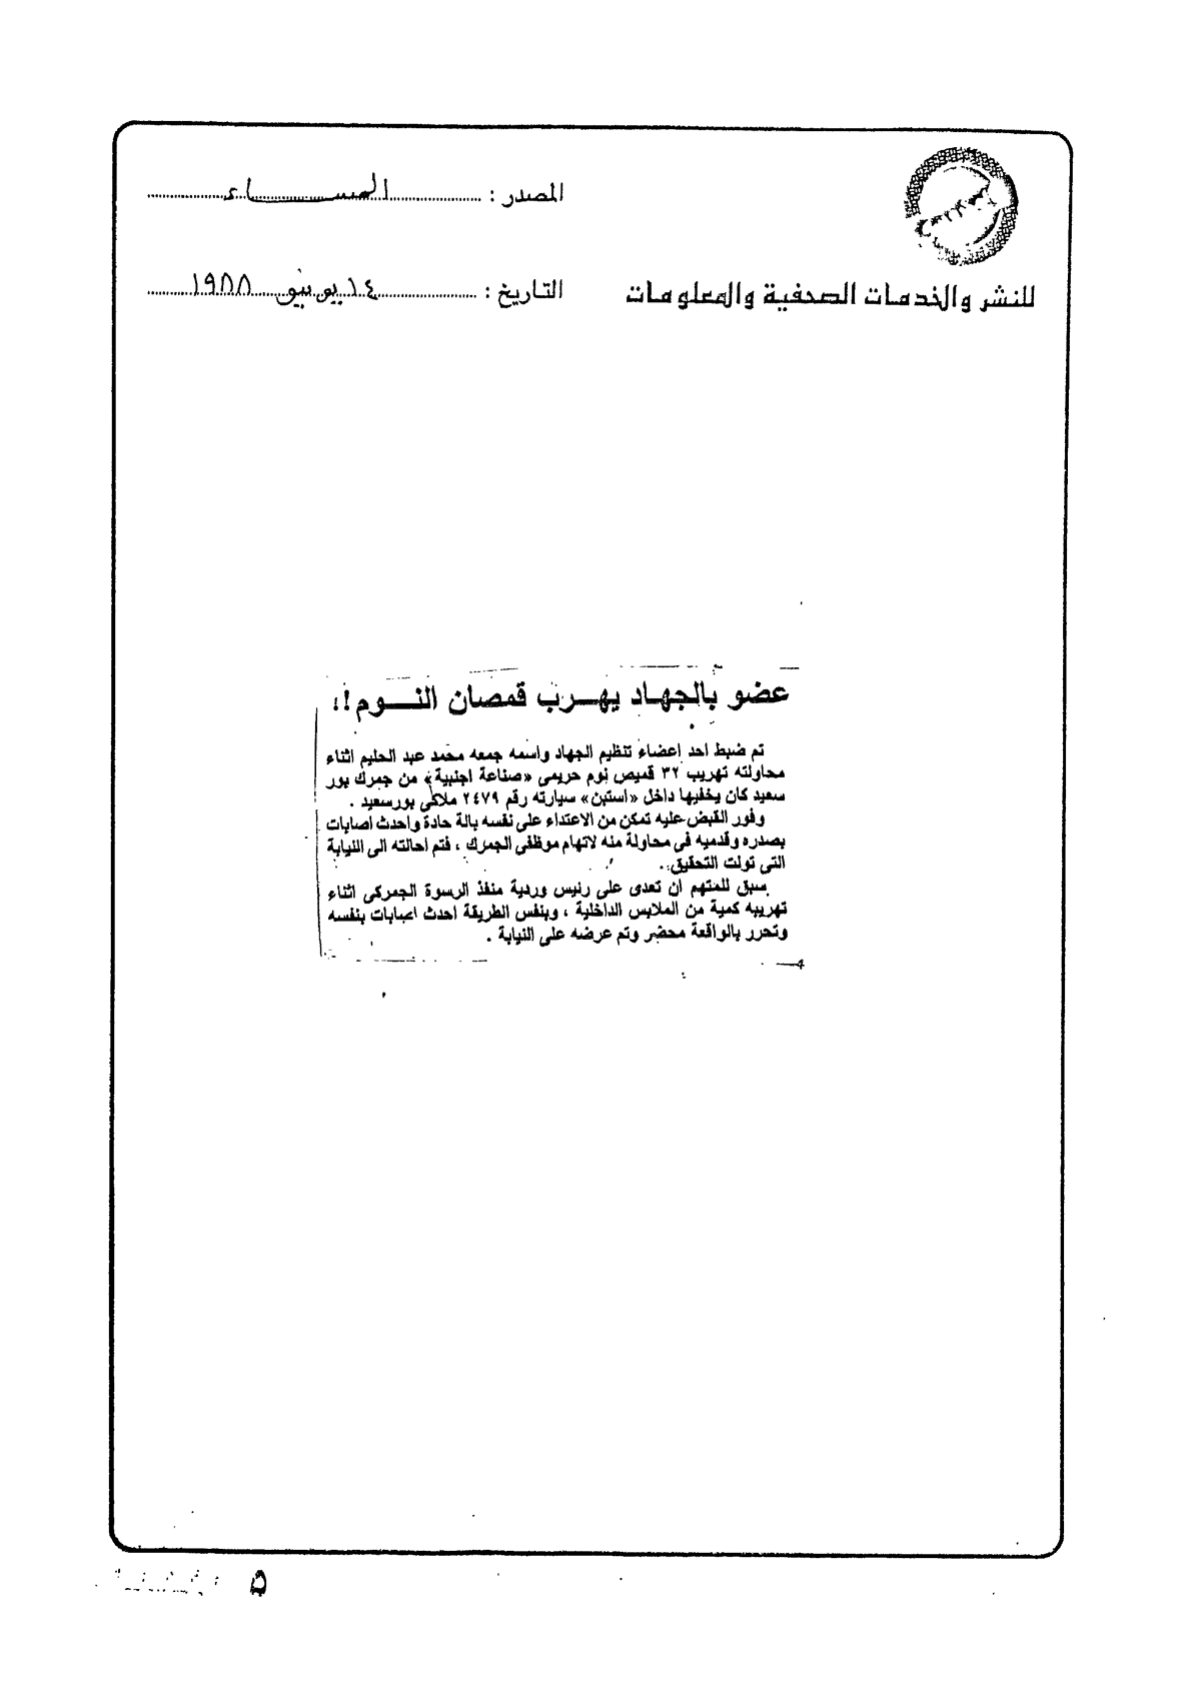 المصدر : المساء
للنشر والخدمات الصحفية والمعلومات
التاريخ : ١٤ يونيو ١٩٨٨
عضو بالجهاد يهرب قمصان النوم !!
تم ضبط احد اعضاء تنظيم الجهاد واسمه جمعه محمد عبد الحليم اثناء
محاولته تهريب ٣٢ قميص نوم حريمى «صناعة اجنبية» من جمرك بور
سعيد كان يخفيها داخل «استبن» سيارته رقم ٢٤٧٩ ملاكى بورسعيد .
وفور القبض عليه تمكن من الاعتداء على نفسه بالة حادة واحدث اصابات
بصدره وقدميه فى محاولة منه لاتهام موظفى الجمرك ، فتم احالته الى النيابة
التى تولت التحقيق .
سبق للمتهم ان تعدى على رئيس وردية منفذ الرسوة الجمركى اثناء
تهريبه كمية من الملابس الداخلية ، وبنفس الطريقة احدث اصابات بنفسه
وتحرر بالواقعة محضر وتم عرضه على النيابة .
٥